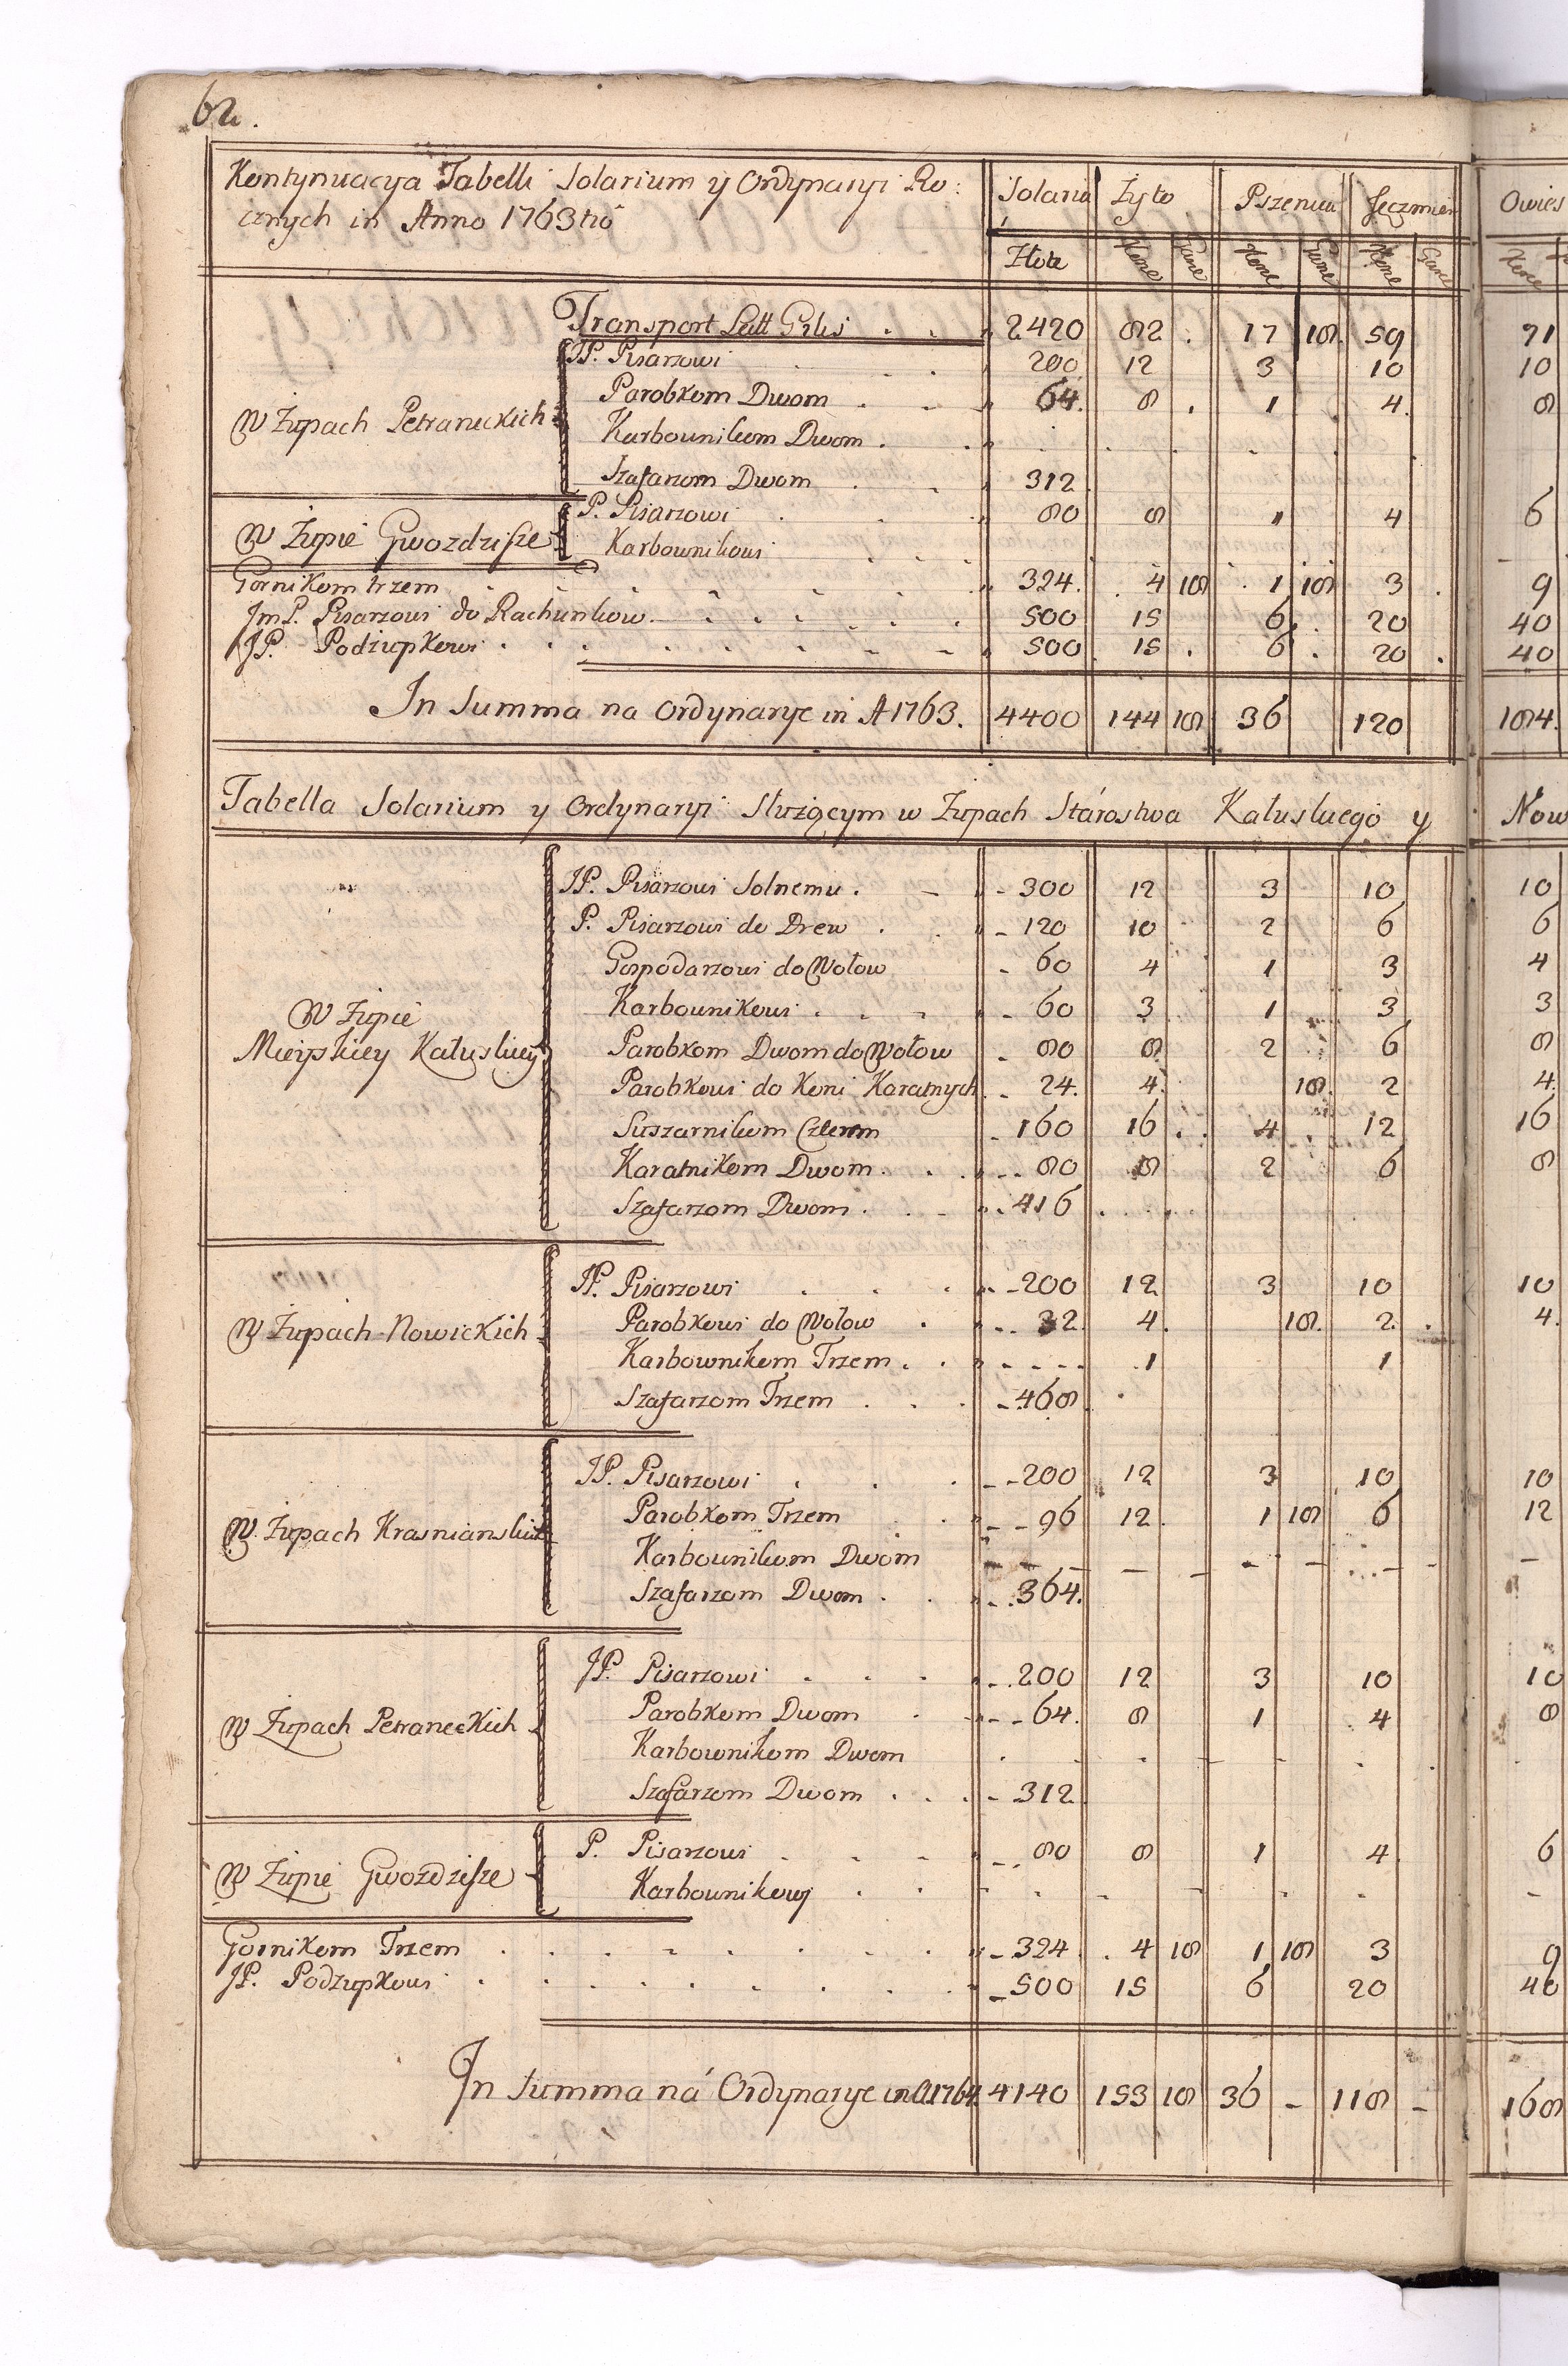 62.
Kontynuacya Tabelli Solarium y Ordynaryi Ro: Solaria Zyto Pszenica Jęczmień Owies
cznych in Anno 1763tio
Złote Korce Garce Korce Garce Korce Garce Korce
Transport Latt Grlis 2420 82 17 18 59 71
W Żupach Petraneckich
JP. Pisarzowi 200 12 3 10 10
Parobkom Dwom 64. 8 1 4. 8
Karbownikom Dwom
Szafarzom Dwom 312
W Żupie Gwozdziesze
P. Pisarzowi 80 8 1 4 6
Karbownikowi
Gornikom trzem 324. 4 18 1 18 3 9
JmP. Pisarzowi do Rachunkow 500 15 6 20 40
JP. Podżupkowi 500 15 6 20 40
In Summa na Ordynarye in A 1763. 4400 144 18 36 120 184.
Tabella Solarium y Ordynaryi Służącym w Żupach Stárostwa Kałuskiego y Now
W Żupie
Mieyskiey Kałuskiey
JP. Pisarzowi Solnemu 300 12 3 10 10
P. Pisarzowi do Drew 120 10 2 6 6
Gospodarzowi do Wołow 60 4 1 3 4
Karbownikowi 60 3 1 3 3
Parobkom Dwom do Wołow 80 8 2 6 8
Parobkowi do Koni Karatnych 24. 4. 18. 2 4.
Suszarnikom Czterem 160 16 4 12 16
Karatnikom Dwom 80 8 2 6 8
Szafarzom Dwom 416
W Żupach Nowickich
JP. Pisarzowi 200 12 3 10 10
Parobkowi do Wołow 32 4. 18. 2. 4.
Karbownikom Trzem 1 1
Szafarzom Trzem 468
W Żupach Krasnianskich
JP. Pisarzowi 200 12 3 10 10
Parobkom Trzem 96 12 1 18 6 12
Karbownikom Dwom
Szafarzom Dwom 364.
W Żupach Petraneckich
JP. Pisarzowi 200 12 3 10 10
Parobkom Dwom 64. 8 1 4 8
Karbownikom Dwom
Szafarzom Dwom 312
W Żupie Gwozdziesze
P. Pisarzowi 80 8 1 4 6
Karbownikowi
Gornikom Trzem 324 4 18 1 18 3 9
JP. Podżupkowi 500 15 6 20 40
In Summa ná Ordynarye in A 1764. 4140 153 18 36 - 118 - 168